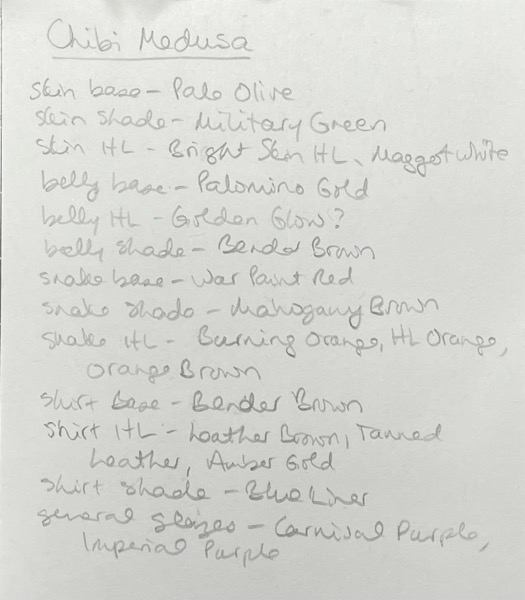 Chibi Medusa
skin base - Pale Olive
skin shade - Military Green
skin HL - Bright Skin HL, Maggot White
belly base - Palomino Gold
belly HL - Golden Glow?
belly shade - Bender Brown
snake base - War Paint Red
snake shade - Mahogany Brown
snake HL - Burning Orange, HL Orange,
Orange Brown
shirt base - Bender Brown
shirt HL - Leather Brown, Tanned
Leather, Amber Gold
shirt shade - Blue Liner
general glazes - Carnival Purple,
Imperial Purple